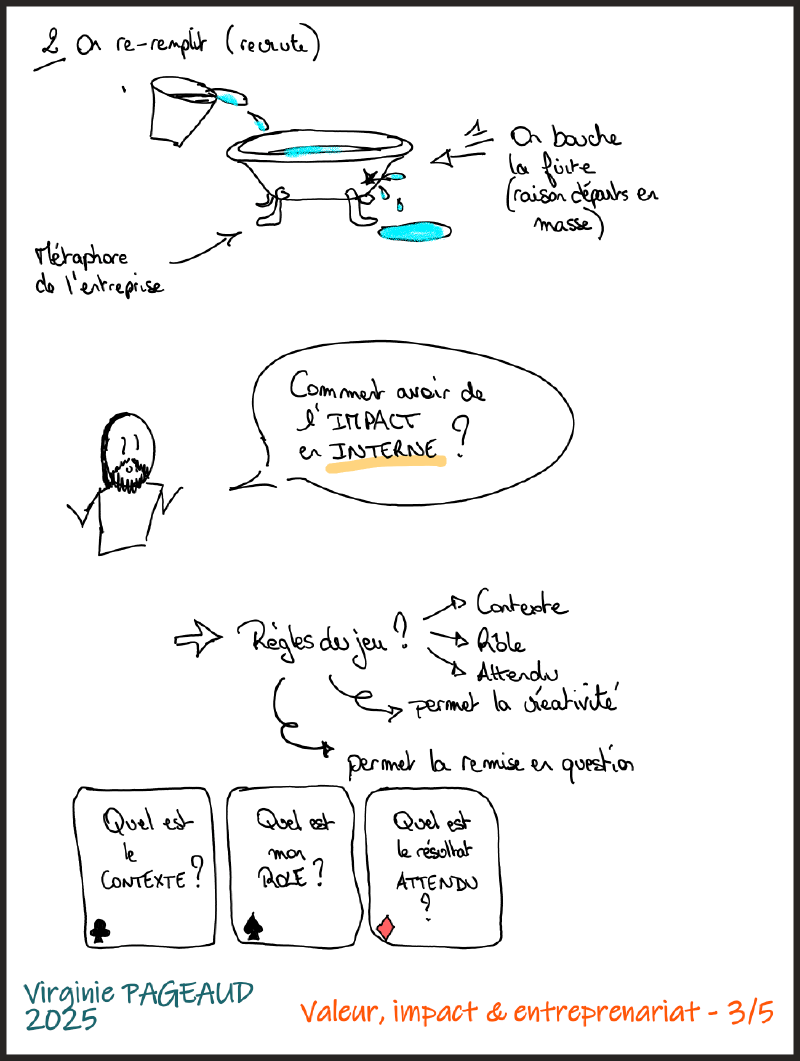 2 On re-remplit (recrute)
1 On bouche
la fuite
(raison départs en
masse)
Métaphore
de l'entreprise
Comment avoir de
l'IMPACT
en INTERNE ?
Règles du jeu ?
Contexte
Rôle
Attendu
permet la créativité
permet la remise en question
Quel est
le
CONTEXTE ?
Quel est
mon
ROLE ?
Quel est
le résultat
ATTENDU
?
Virginie PAGEAUD
2025
Valeur, impact & entreprenariat - 3/5